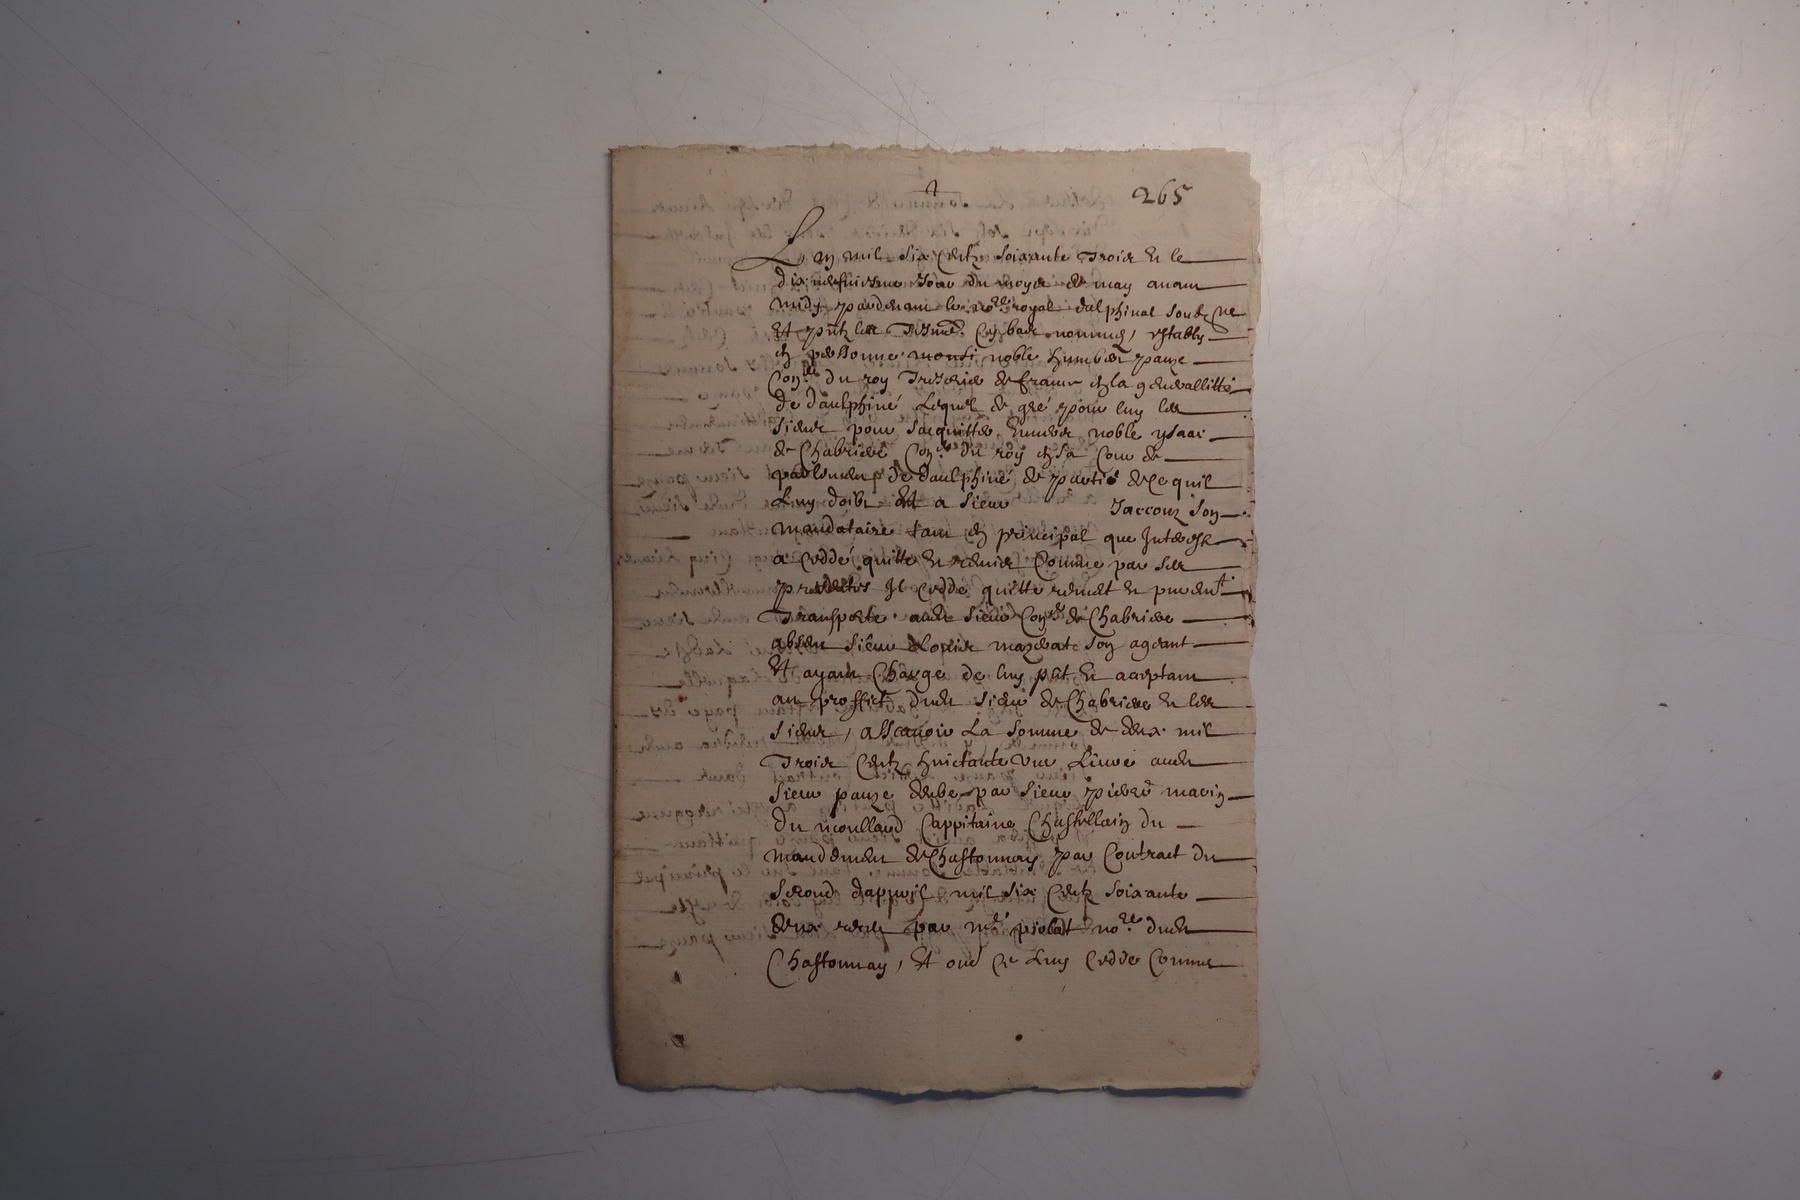 265
Lan mil six centz soixante trois et le
dix neufviesme jour du moys de may avant
midy pardevant le no.re royal dalphinal soubz.ne
Et p.ntz les tesm.s cy bas nommez, establis
en personne noble humbert panze
Con.er du roy tresorier de france en la generallitté
de daulphiné Lequel de gré pour luy les
sieurs pour sacquitter envers noble ysaac
de Chabrieres Con.er du roy en sa Cour de
parlement de daulphiné de partie de ce quil
Luy doibt et a sieur Jaccour son
mandataire tant en principal que Interestz
a ceddé quitté et remis Comme par ses
presentes Il cedde quitte remet et purem.t
Transporte aud. sieur Con.er de Chabrieres
absent sieur marchant son ageant
Et ayant Charge de luy p.nt et acceptant
au proffict dud. sieur de Chabrieres et les
sieurs, asscavoir La somme de deux mil
Trois centz huictante une Livre aud.
sieur panze deube par sieur pierre marin
du moullard Cappitaine Chastellain du
mandement de Chastonnay par Contract du
second dapvril mil six centz soixante
deux receu par m.e piolat no.re dud.
Chastonnay, Et oud. Ce Luy cedde Comme